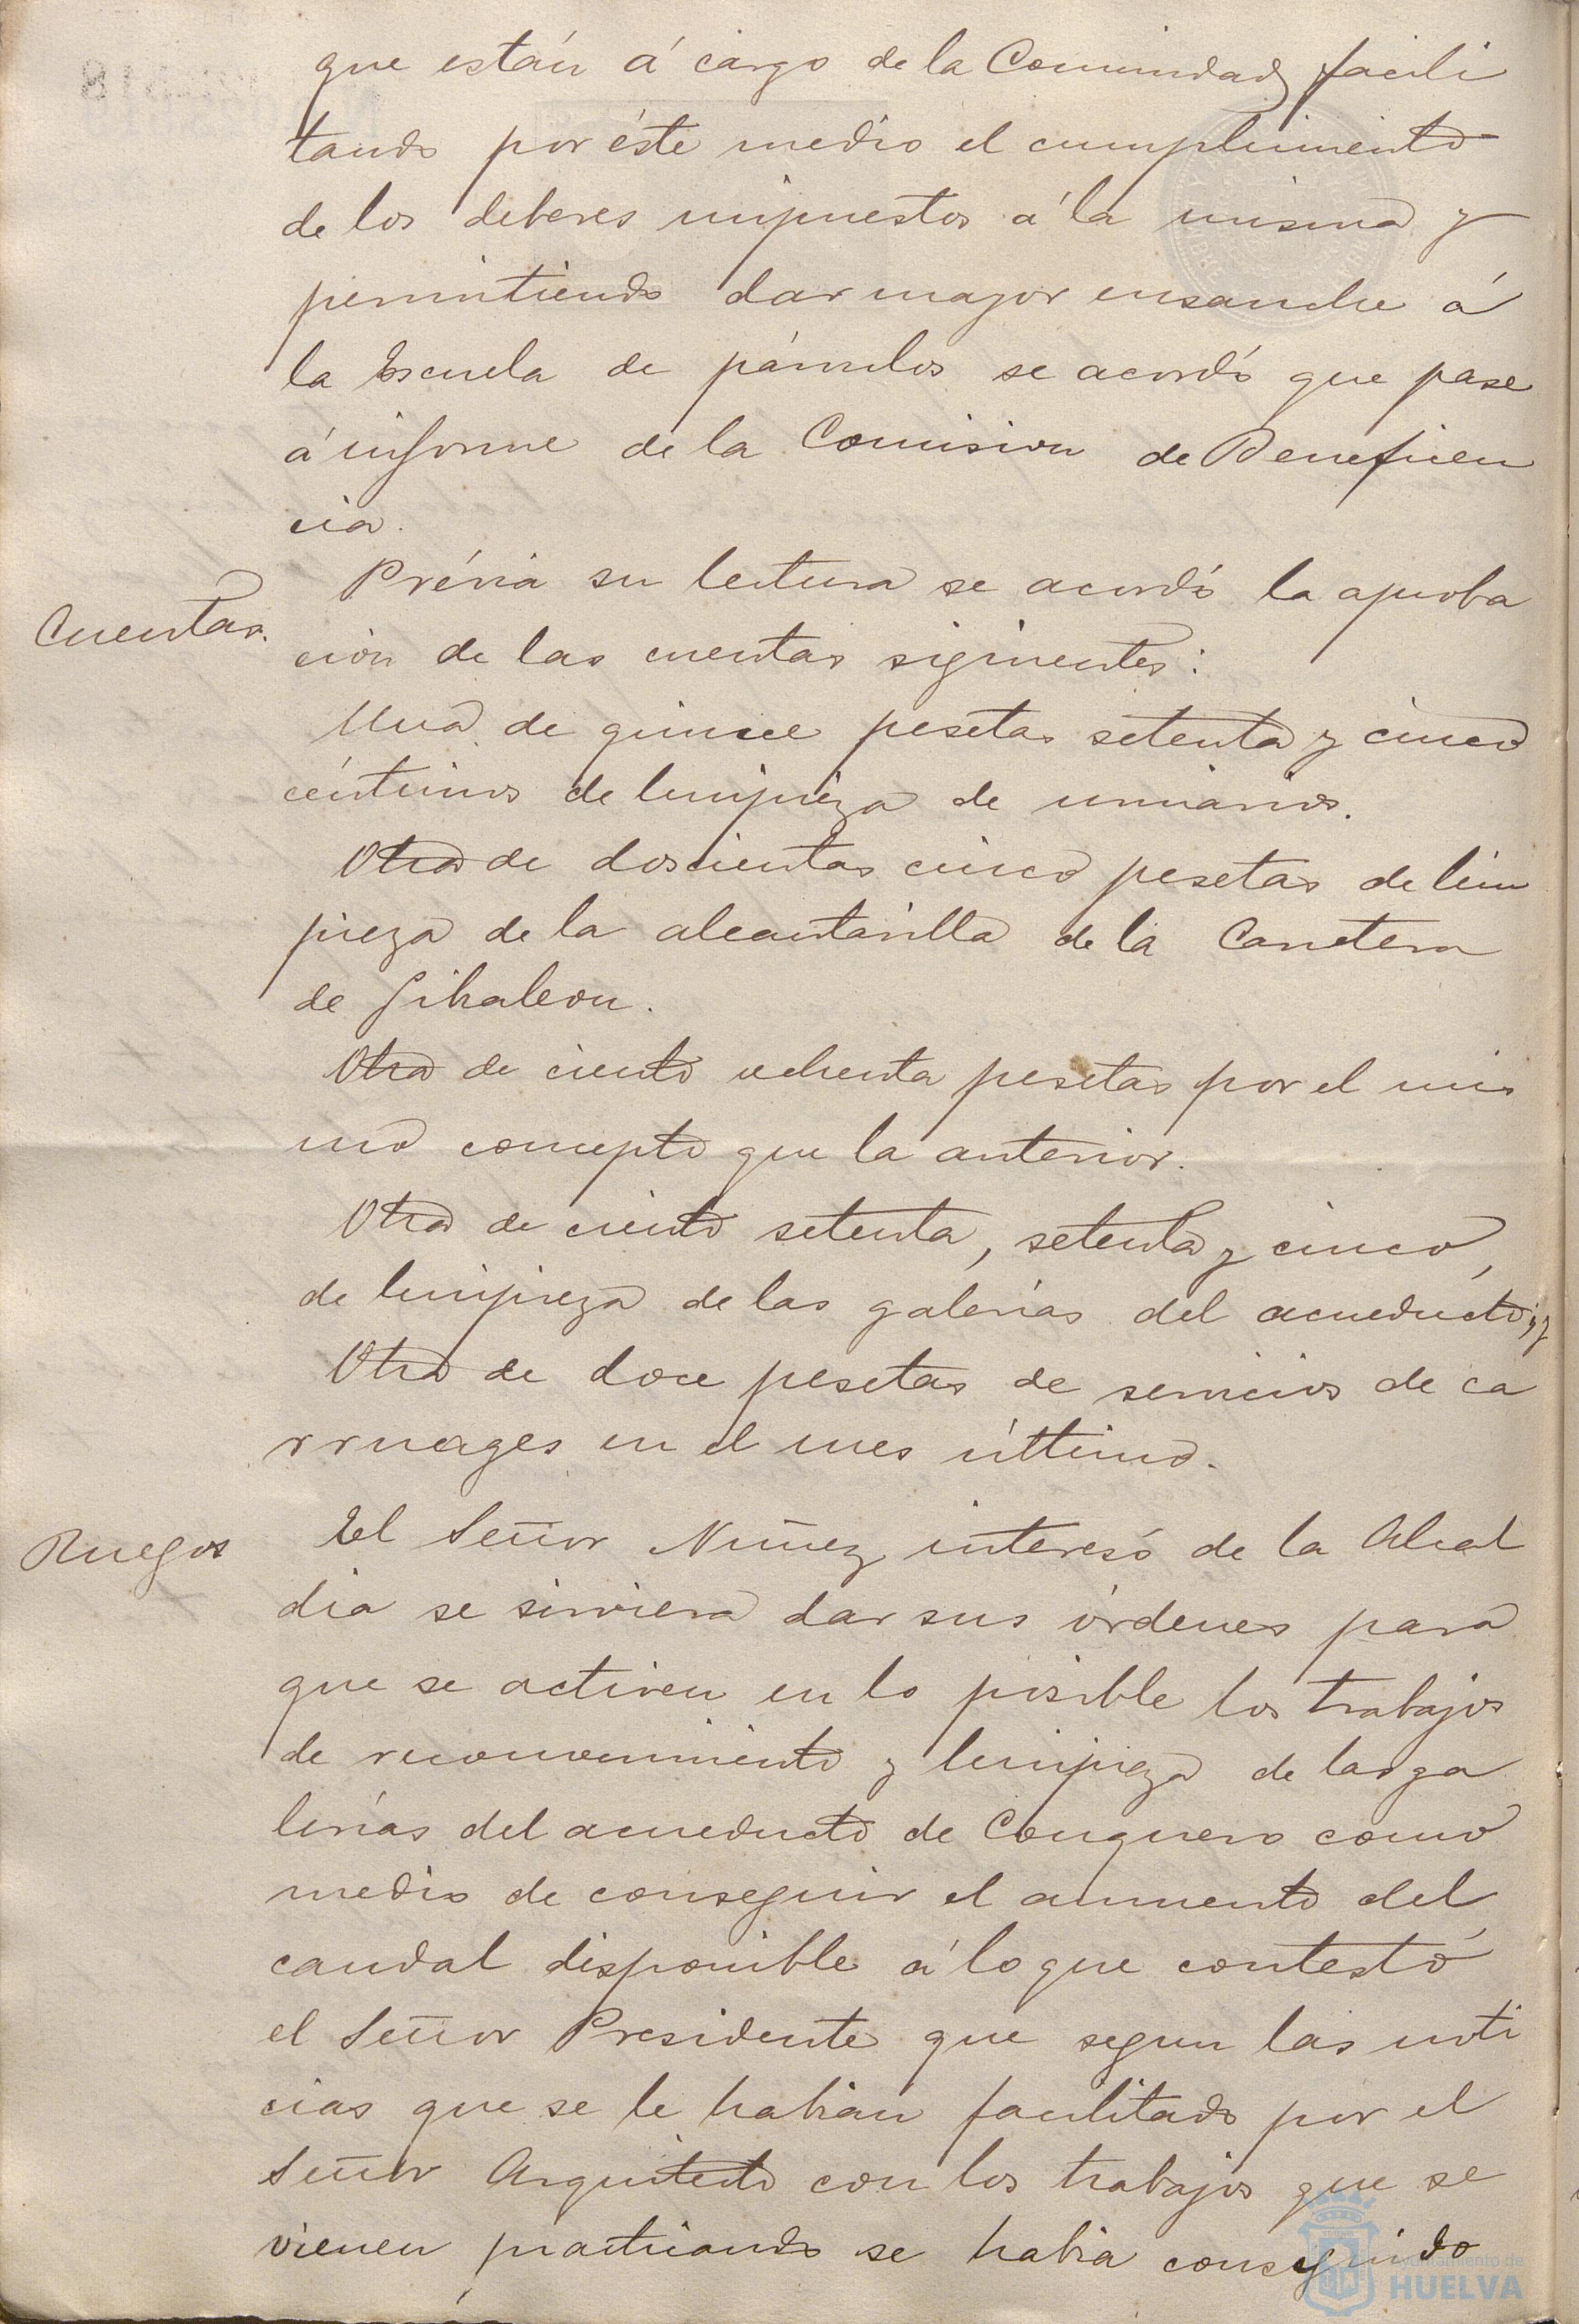 que están á cargo de la Comunidad, facili
tando por éste medio el cumplimiento
de los deberes impuestos á la misma y
permitiendo dar mayor ensanche á
la Escuela de párvulos se acordó que pase
á informe de la Comision de Beneficen
cia.
Cuentas.
Prévia su lectura se acordó la aproba
cion de las cuentas siguientes:
Una de quince pesetas setenta y cinco
céntimos de limpieza de urinarios.
Otra de doscientas cinco pesetas de lim
pieza de la alcantarilla de la Carretera
de Gibraleon.
Otra de ciento ochenta pesetas por el mis
mo concepto que la anterior.
Otra de ciento setenta, setenta y cinco,
de limpieza de las galerías del acueducto; y
Otra de doce pesetas de servicios de ca
rruages en el mes último.
Ruegos
El Señor Nuñez interesó de la Alcal
dia se sirviera dar sus órdenes para
que se activen en lo posible los trabajos
de reconocimiento y limpieza de las ga
lerías del acueducto de Conquero como
medio de conseguir el aumento del
caudal disponible á lo que contestó
el Señor Presidente que segun las noti
cias que se le habian facilitado por el
Señor Arquitecto con los trabajos que se
vienen practicando se habia conseguido
Ayuntamiento de
HUELVA